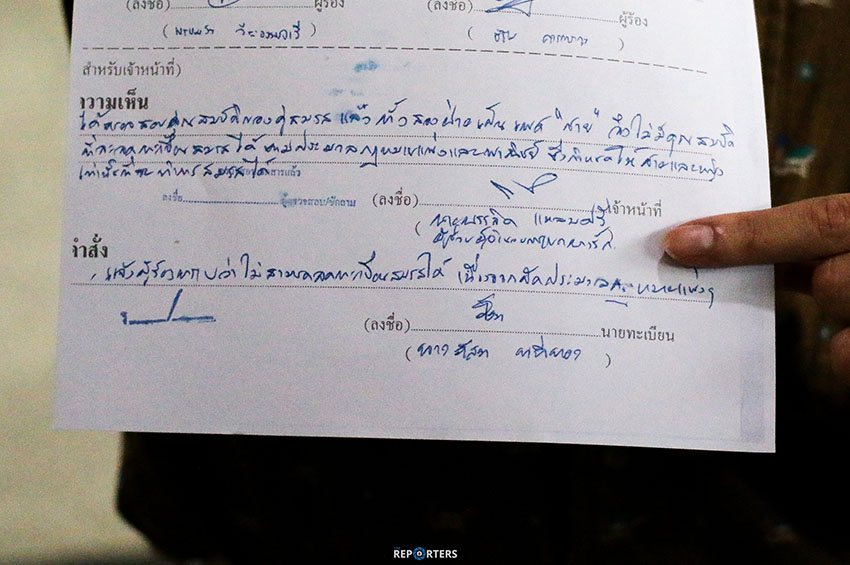 (ลงชื่อ) ผู้ร้อง (ลงชื่อ) ผู้ร้อง
( ) ( )
สำหรับเจ้าหน้าที่)
ความเห็น
ได้ตรวจสอบคุณสมบัติของคู่สมรส แล้ว ทั้งสองฝ่ายเป็นเพศ "ชาย" จึงไม่มีคุณสมบัติ
ที่จะจดทะเบียนสมรสได้ ตามประมวลกฎหมายแพ่งและพาณิชย์ ซึ่งกำหนดให้ชายและหญิง
เท่านั้นที่จะทำการสมรสได้
ลงชื่อ ผู้ตรวจสอบ/ซักถาม (ลงชื่อ) เจ้าหน้าที่
คำสั่ง
แจ้งผู้ร้องทราบว่าไม่สามารถจดทะเบียนสมรสได้ เนื่องจากขัดประมวลกฎหมายแพ่งฯ
(ลงชื่อ) นายทะเบียน
REPORTERS